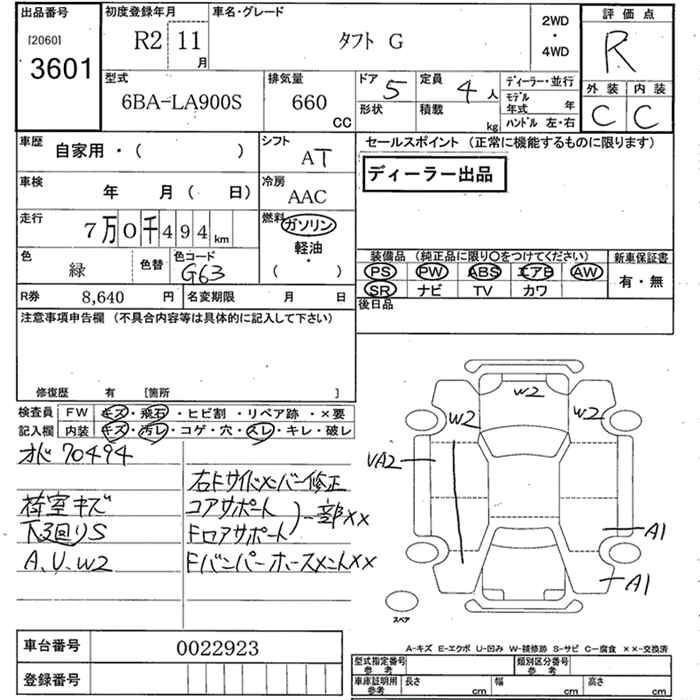 出品番号
[2060]
3601
初度登録年月
R2 11月
車名・グレード
タフト G
2WD
・
4WD
評価点
R
外装 内装
C C
型式
6BA-LA900S
排気量
660 CC
ドア 5
形状
定員 4 人
積載 kg
ディーラー・並行
モデル年式 年
ハンドル 左・右
車歴
自家用・( )
シフト
AT
車検
年 月( 日)
冷房
AAC
走行
7万0千494 km
燃料
ガソリン
軽油・
( ・ )
色
緑
色替
色コード
G63
R券 8,640 円
名変期限 月 日
セールスポイント (正常に機能するものに限ります)
ディーラー出品
装備品 (純正品に限り○をつけてください)
PS PW ABS エアB AW
SR ナビ TV カワ
新車保証書
有・無
後日品
注意事項申告欄 (不具合内容等は具体的に記入して下さい)
修復歴 有 [箇所 ]
検査員
記入欄
FW キズ・飛石・ヒビ割・リペア跡・×要
内装 キズ・汚レ・コゲ・穴・スレ・キレ・破レ
オド 70494
荷室キズ
下廻りS
A、U、W2
右Fサイドメンバー修正
コアサポート
Fロアサポート
一部××
Fバンパーホースメント××
W2
W2
W2
VA2
A1
A1
スペア
車台番号 0022923
登録番号
A-キズ E-エクボ U-凹み W-補修跡 S-サビ C-腐食 ××-交換済
型式指定番号
参考
類別区分番号
参考
車庫証明用
参考
長さ cm 幅 cm 高さ cm